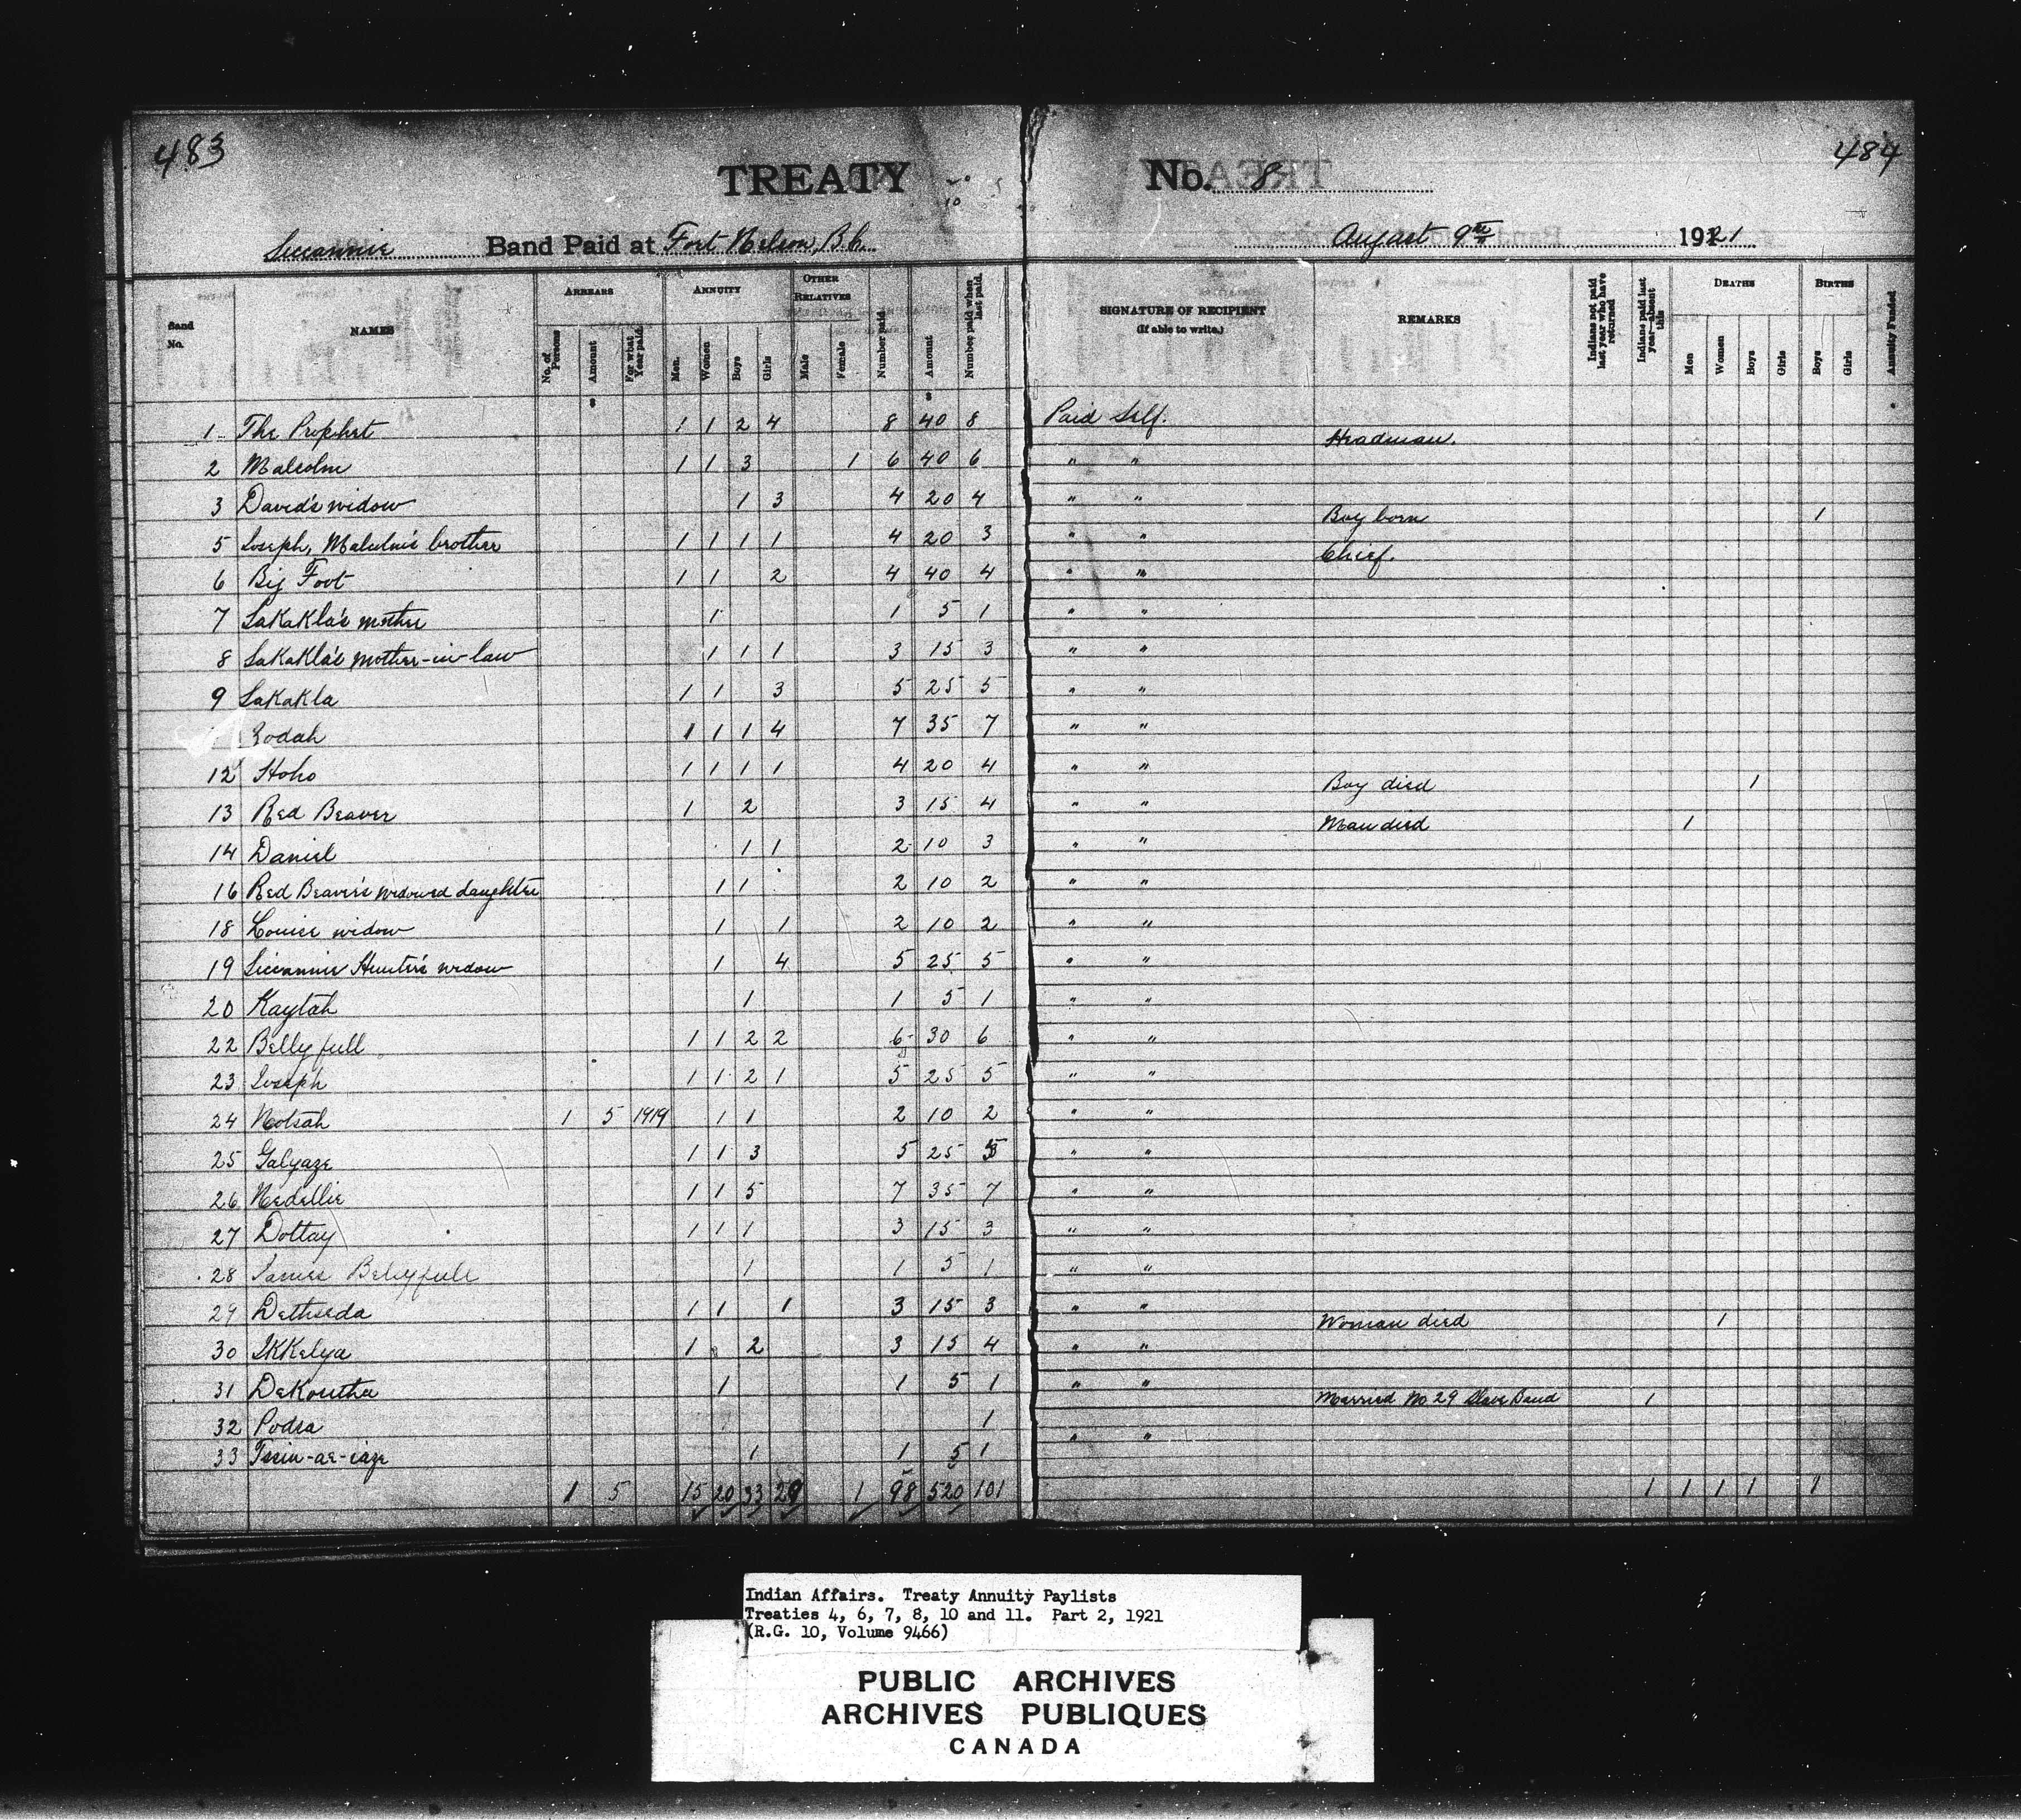 483
484
TREATY No. 8
Siccannie Band Paid at Fort Nelson, B.C. August 9th 1921
Band No. NAMES ARREARS ANNUITY OTHER RELATIVES Number paid Amount Number paid when last paid. SIGNATURE OF RECIPIENT (If able to write.) REMARKS Indians not paid last year who have returned Indians paid last year—absent this DEATHS BIRTHS Annuity Funded
No. of Persons Amount For what Year paid. Men. Women Boys Girls Male Female Men Women Boys Girls Boys Girls
$ $
1 The Prophet 1 1 2 4 8 40 8 Paid Self.
Headman.
2 Malcolm 1 1 3 1 6 40 6 " "
3 David's widow 1 3 4 20 4 " "
Boy born 1
5 Joseph, Malcolm's brother 1 1 1 1 4 20 3 " "
Chief.
6 Big Foot 1 1 2 4 40 4 " "
7 Sakakla's mother 1 1 5 1 " "
8 Sakakla's mother-in-law 1 1 1 3 15 3 " "
9 Sakakla 1 1 3 5 25 5 " "
Zodah 1 1 1 4 7 35 7 " "
12 Hoho 1 1 1 1 4 20 4 " "
Boy died 1
13 Red Beaver 1 2 3 15 4 " "
Man died 1
14 Daniel 1 1 2 10 3 " "
16 Red Beaver's widowed daughter 1 1 2 10 2 " "
18 Louie's widow 1 1 2 10 2 " "
19 Siccannie Hunter's widow 1 4 5 25 5 " "
20 Kaytah 1 1 5 1 " "
22 Belly full 1 1 2 2 6 30 6 " "
23 Joseph 1 1 2 1 5 25 5 " "
24 Notsah 1 5 1919 1 1 2 10 2 " "
25 Galyaze 1 1 3 5 25 5 " "
26 Nedellie 1 1 5 7 35 7 " "
27 Dottay 1 1 1 3 15 3 " "
28 James Bellyfull 1 1 5 1 " "
29 Dethseda 1 1 1 3 15 3 " "
Woman died 1
30 Ikkelya 1 2 3 15 4 " "
31 Dekoutha 1 1 5 1 " "
Married No 29 Slave Band 1
32 Podsa 1
33 Tsein-ae-iaze 1 1 5 1 " "
1 5 15 20 33 29 1 98 520 101 1 1 1 1 1
Indian Affairs. Treaty Annuity Paylists
Treaties 4, 6, 7, 8, 10 and 11. Part 2, 1921
(R.G. 10, Volume 9466)
PUBLIC ARCHIVES
ARCHIVES PUBLIQUES
CANADA